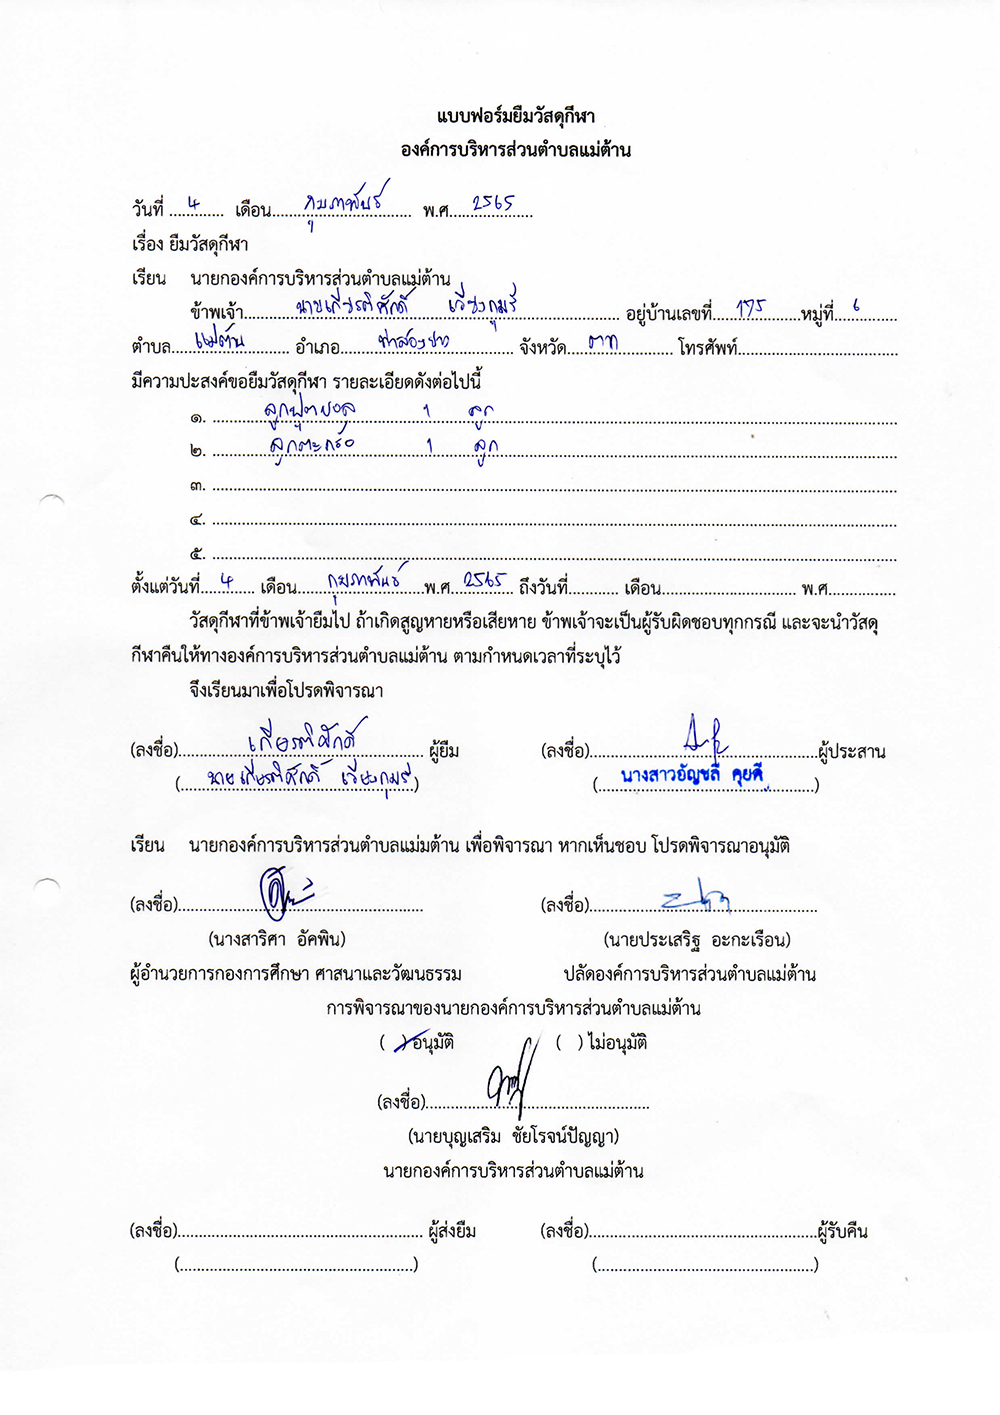 แบบฟอร์มยืมวัสดุกีฬา
องค์การบริหารส่วนตำบลแม่ต้าน
วันที่ 4 เดือน กุมภาพันธ์ พ.ศ. 2565
เรื่อง ยืมวัสดุกีฬา
เรียน นายกองค์การบริหารส่วนตำบลแม่ต้าน
ข้าพเจ้า นายเกียรติศักดิ์ เวียงกุมรี อยู่บ้านเลขที่ 175 หมู่ที่ 6
ตำบล แม่ต้าน อำเภอ ท่าสองยาง จังหวัด ตาก โทรศัพท์
มีความประสงค์ขอยืมวัสดุกีฬา รายละเอียดดังต่อไปนี้
๑. ลูกฟุตบอล 1 ลูก
๒. ลูกตะกร้อ 1 ลูก
๓.
๔.
๕.
ตั้งแต่วันที่ 4 เดือน กุมภาพันธ์ พ.ศ. 2565 ถึงวันที่ เดือน พ.ศ.
วัสดุกีฬาที่ข้าพเจ้ายืมไป ถ้าเกิดสูญหายหรือเสียหาย ข้าพเจ้าจะเป็นผู้รับผิดชอบทุกกรณี และจะนำวัสดุ
กีฬาคืนให้ทางองค์การบริหารส่วนตำบลแม่ต้าน ตามกำหนดเวลาที่ระบุไว้
จึงเรียนมาเพื่อโปรดพิจารณา
(ลงชื่อ) เกียรติศักดิ์ ผู้ยืม (ลงชื่อ) ผู้ประสาน
(นายเกียรติศักดิ์ เวียงกุมรี) (นางสาวอัญชลี คุยดี)
เรียน นายกองค์การบริหารส่วนตำบลแม่มต้าน เพื่อพิจารณา หากเห็นชอบ โปรดพิจารณาอนุมัติ
(ลงชื่อ) (ลงชื่อ)
(นางสาริศา อัคพิน) (นายประเสริฐ อะกะเรือน)
ผู้อำนวยการกองการศึกษา ศาสนาและวัฒนธรรม ปลัดองค์การบริหารส่วนตำบลแม่ต้าน
การพิจารณาของนายกองค์การบริหารส่วนตำบลแม่ต้าน
( ) อนุมัติ ( ) ไม่อนุมัติ
(ลงชื่อ)
(นายบุญเสริม ชัยโรจน์ปัญญา)
นายกองค์การบริหารส่วนตำบลแม่ต้าน
(ลงชื่อ) ผู้ส่งยืม (ลงชื่อ) ผู้รับคืน
( ) ( )